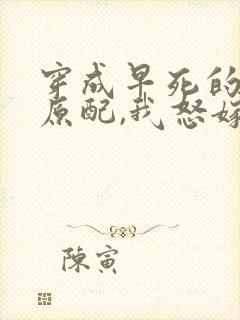 穿成早死的
原配,我怒嫁
陳寅